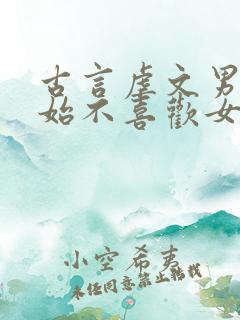 古言虐文男
始不喜歡女
小空希夷
未经同意禁止转载